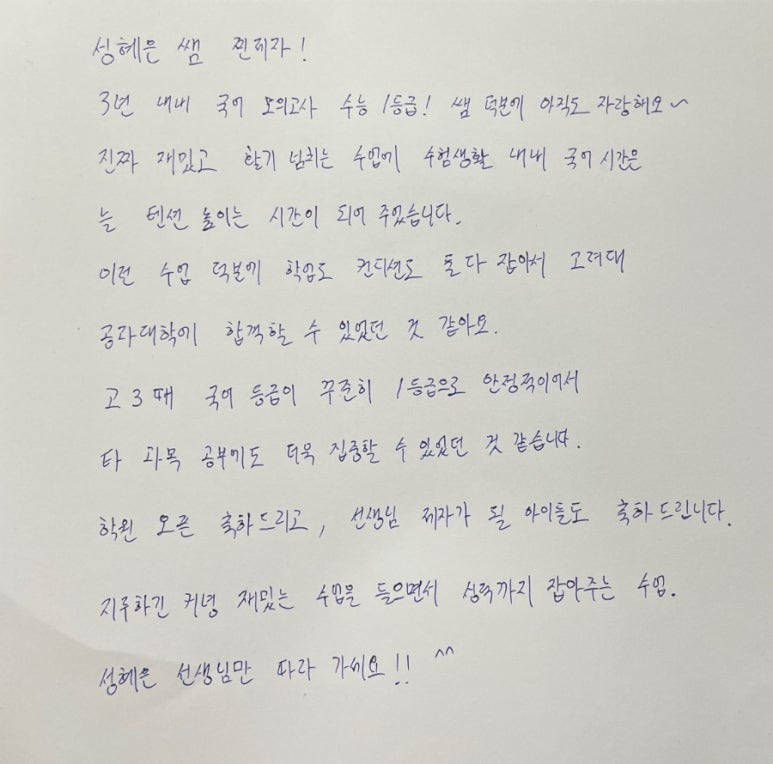 성혜은 쌤 찐제자!
3년 내내 국어 모의고사 수능 1등급! 쌤 덕분에 아직도 자랑해요~
진짜 재밌고 활기 넘치는 수업에 수험생활 내내 국어 시간은
늘 텐션 높이는 시간이 되어 주었습니다.
이런 수업 덕분에 학업도 컨디션도 둘 다 잡아서 고려대
공과대학에 합격할 수 있었던 것 같아요.
고3 때 국어 등급이 꾸준히 1등급으로 안정적이어서
타 과목 공부에도 더욱 집중할 수 있었던 것 같습니다.
학원 오픈 축하드리고, 선생님 제자가 될 아이들도 축하드린니다.
지루하긴 커녕 재밌는 수업을 들으면서 성적까지 잡아주는 수업.
성혜은 선생님만 따라 가세요!! ^^